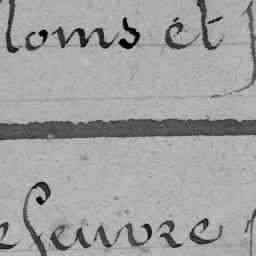 Noms et
Lefeuvre